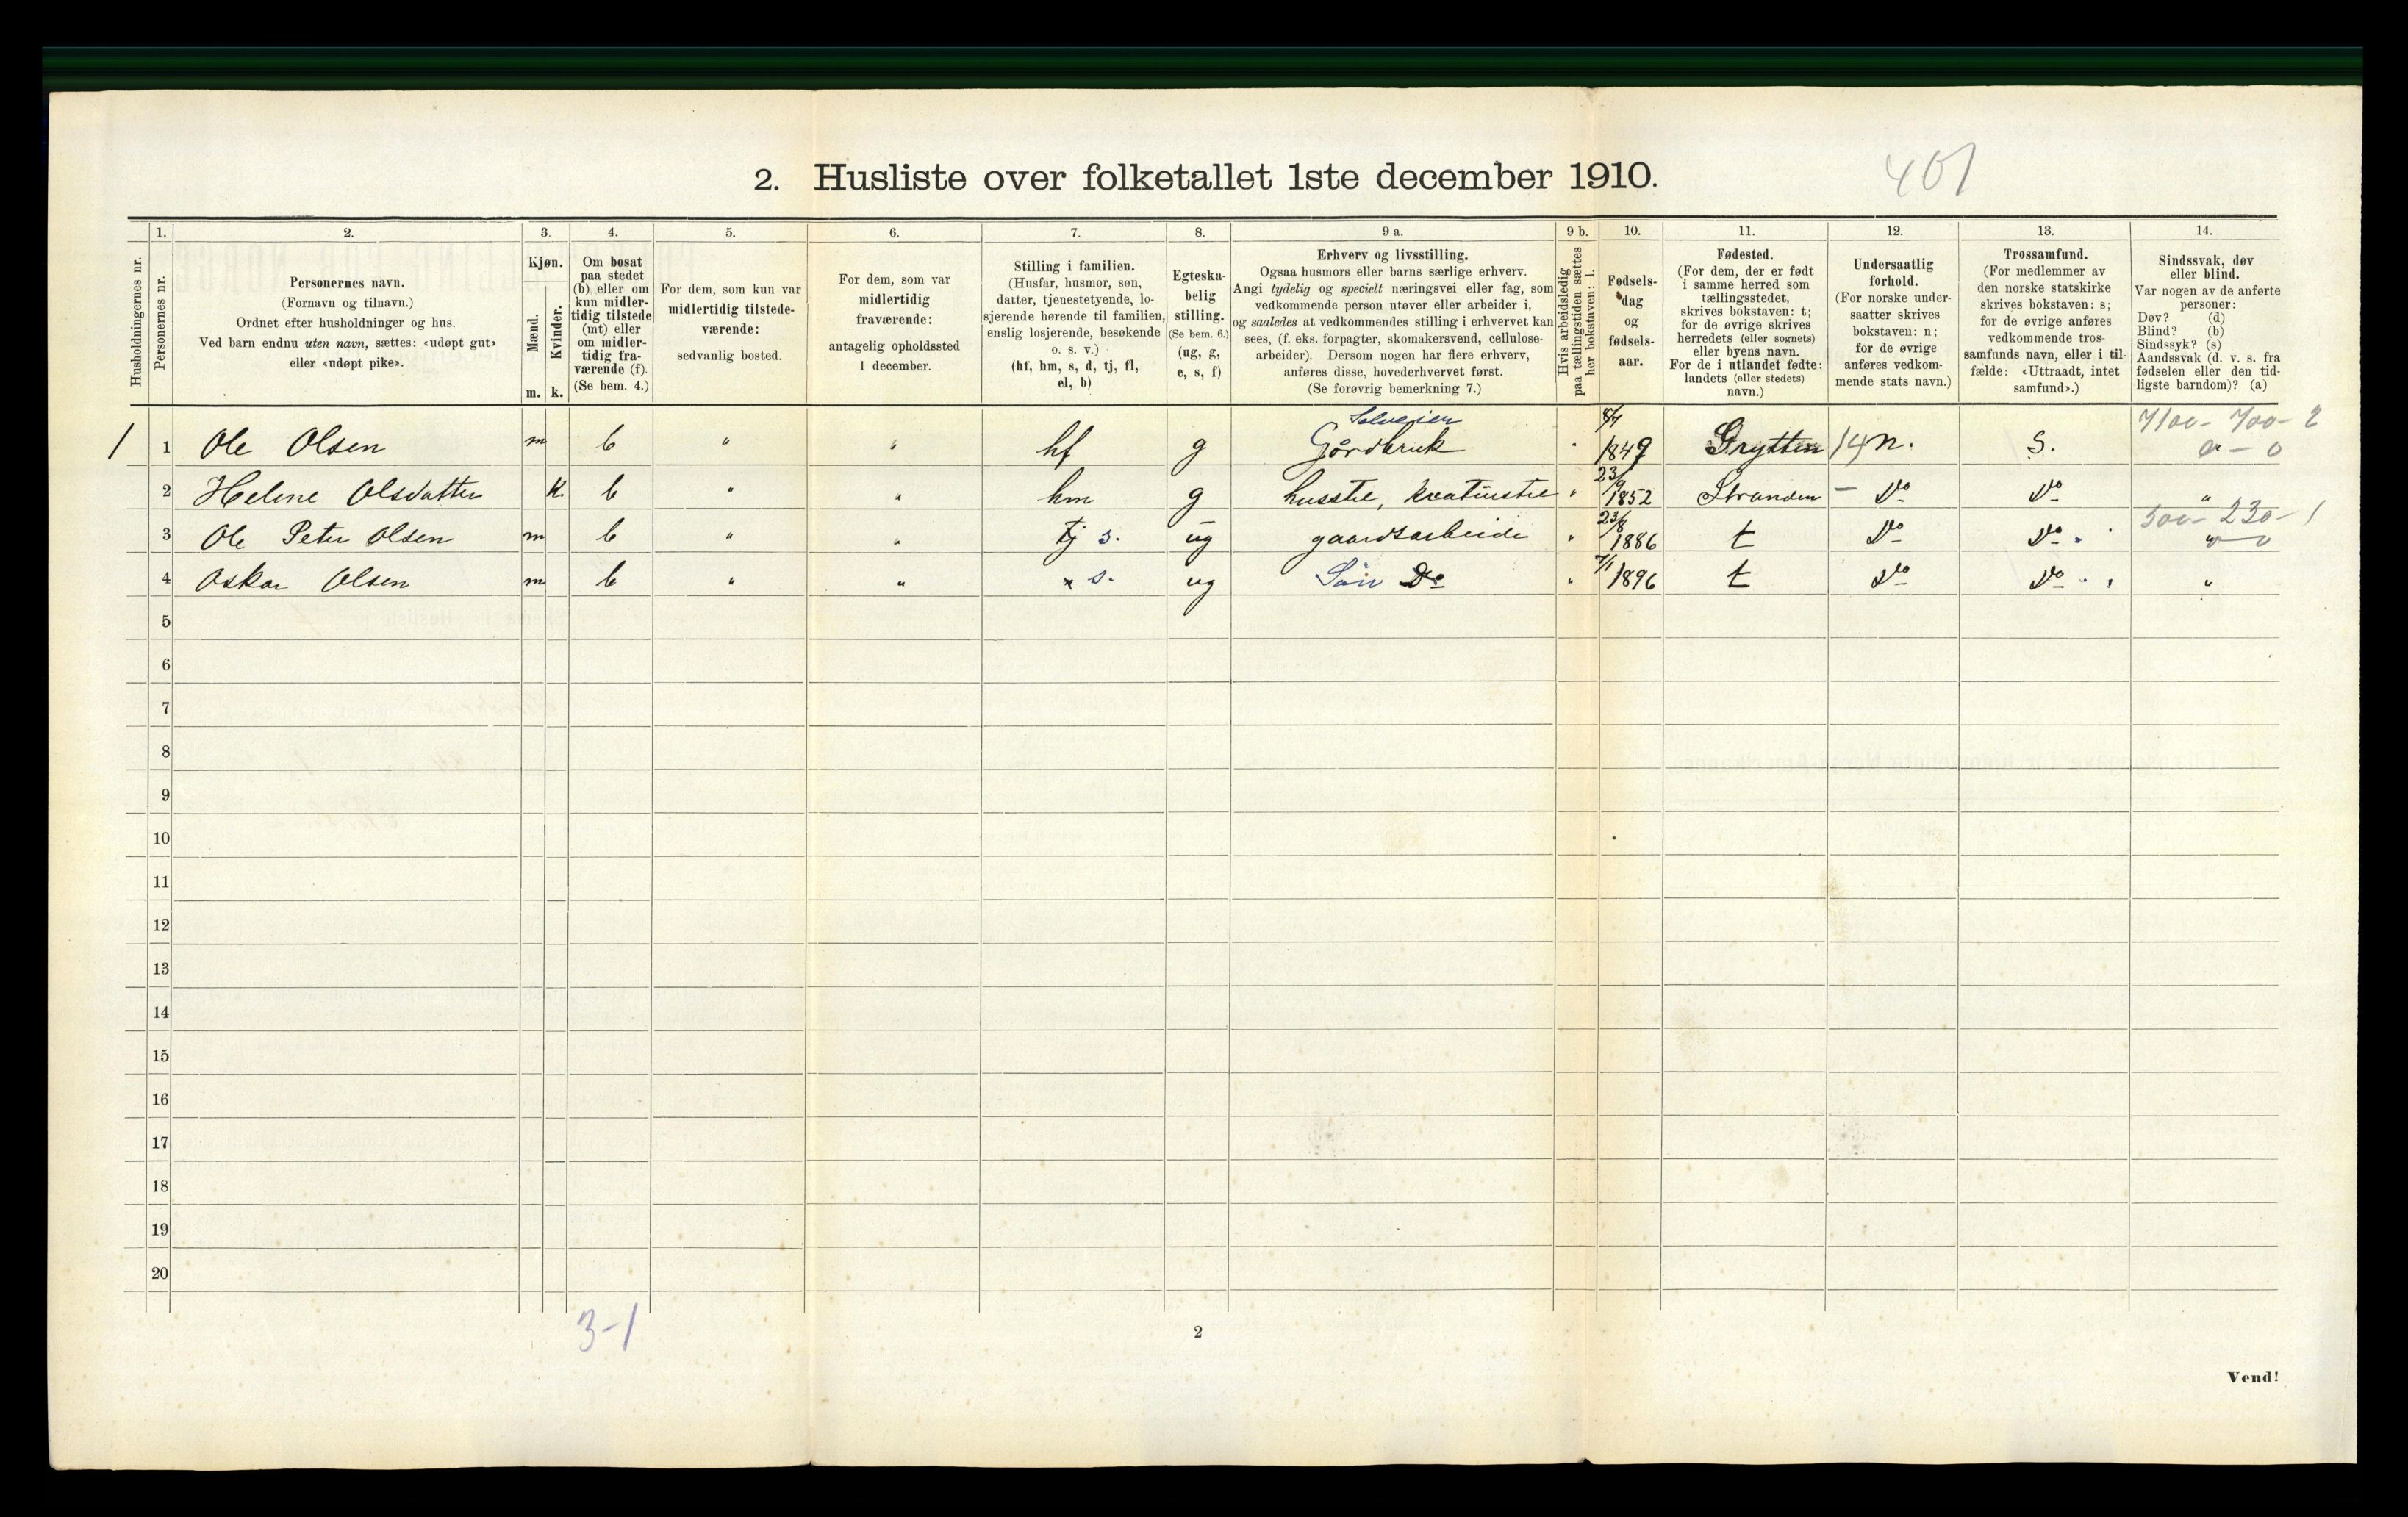 401
2. Husliste over folketallet 1ste december 1910.
Husholdningernes nr.
1. Personernes nr.
2. Personernes navn.
(Fornavn og tilnavn.)
Ordnet efter husholdninger og hus.
Ved barn endnu uten navn, sættes: «udøpt gut»
eller «udøpt pike».
3. Kjøn.
Mænd. m.
Kvinder. k.
4. Om bosat
paa stedet
(b) eller om
kun midler-
tidig tilstede
(mt) eller
om midler-
tidig fra-
værende (f).
(Se bem. 4.)
5. For dem, som kun var
midlertidig tilstede-
værende:
sedvanlig bosted.
6. For dem, som var
midlertidig
fraværende:
antagelig opholdssted
1 december.
7. Stilling i familien.
(Husfar, husmor, søn,
datter, tjenestetyende, lo-
sjerende hørende til familien,
enslig losjerende, besøkende
o. s. v.)
(hf, hm, s, d, tj, fl,
el, b)
8. Egteska-
belig
stilling.
(Se bem. 6.)
(ug, g,
e, s, f)
9 a. Erhverv og livsstilling.
Ogsaa husmors eller barns særlige erhverv.
Angi tydelig og specielt næringsvei eller fag, som
vedkommende person utøver eller arbeider i,
og saaledes at vedkommendes stilling i erhvervet kan
sees, (f. eks. forpagter, skomakersvend, cellulose-
arbeider). Dersom nogen har flere erhverv,
anføres disse, hovederhvervet først.
(Se forøvrig bemerkning 7.)
9 b. Hvis arbeidsledig
paa tællingstiden sættes
her bokstaven: l.
10. Fødsels-
dag
og
fødsels-
aar.
11. Fødested.
(For dem, der er født
i samme herred som
tællingsstedet,
skrives bokstaven: t;
for de øvrige skrives
herredets (eller sognets)
eller byens navn.
For de i utlandet fødte:
landets (eller stedets)
navn.)
12. Undersaatlig
forhold.
(For norske under-
saatter skrives
bokstaven: n;
for de øvrige
anføres vedkom-
mende stats navn.)
13. Trossamfund.
(For medlemmer av
den norske statskirke
skrives bokstaven: s;
for de øvrige anføres
vedkommende tros-
samfunds navn, eller i til-
fælde: «Uttraadt, intet
samfund».)
14. Sindssvak, døv
eller blind.
Var nogen av de anførte
personer:
Døv? (d)
Blind? (b)
Sindssyk? (s)
Aandssvak (d. v. s. fra
fødselen eller den tid-
ligste barndom)? (a)
Selveier 7100 - 700 - 2
1 1 Ole Olsen m b " " hf g Gårdbruk 1849 Grytten 14 n. S. 0
2 Heline Olsdatter k b " " hm g husstel, kreaturstel " 23/9 1852 Stranden - Do Do "
300 - 230 - 1
3 Ole Peter Olsen m b " " tj s. ug gaardsarbeide " 23/8 1886 t Do Do
4 Oskar Olsen m b " " s. ug Søn Do " 7/1 1896 t Do Do "
5
6
7
8
9
10
11
12
13
14
15
16
17
18
19
20
3-1
2
Vend!